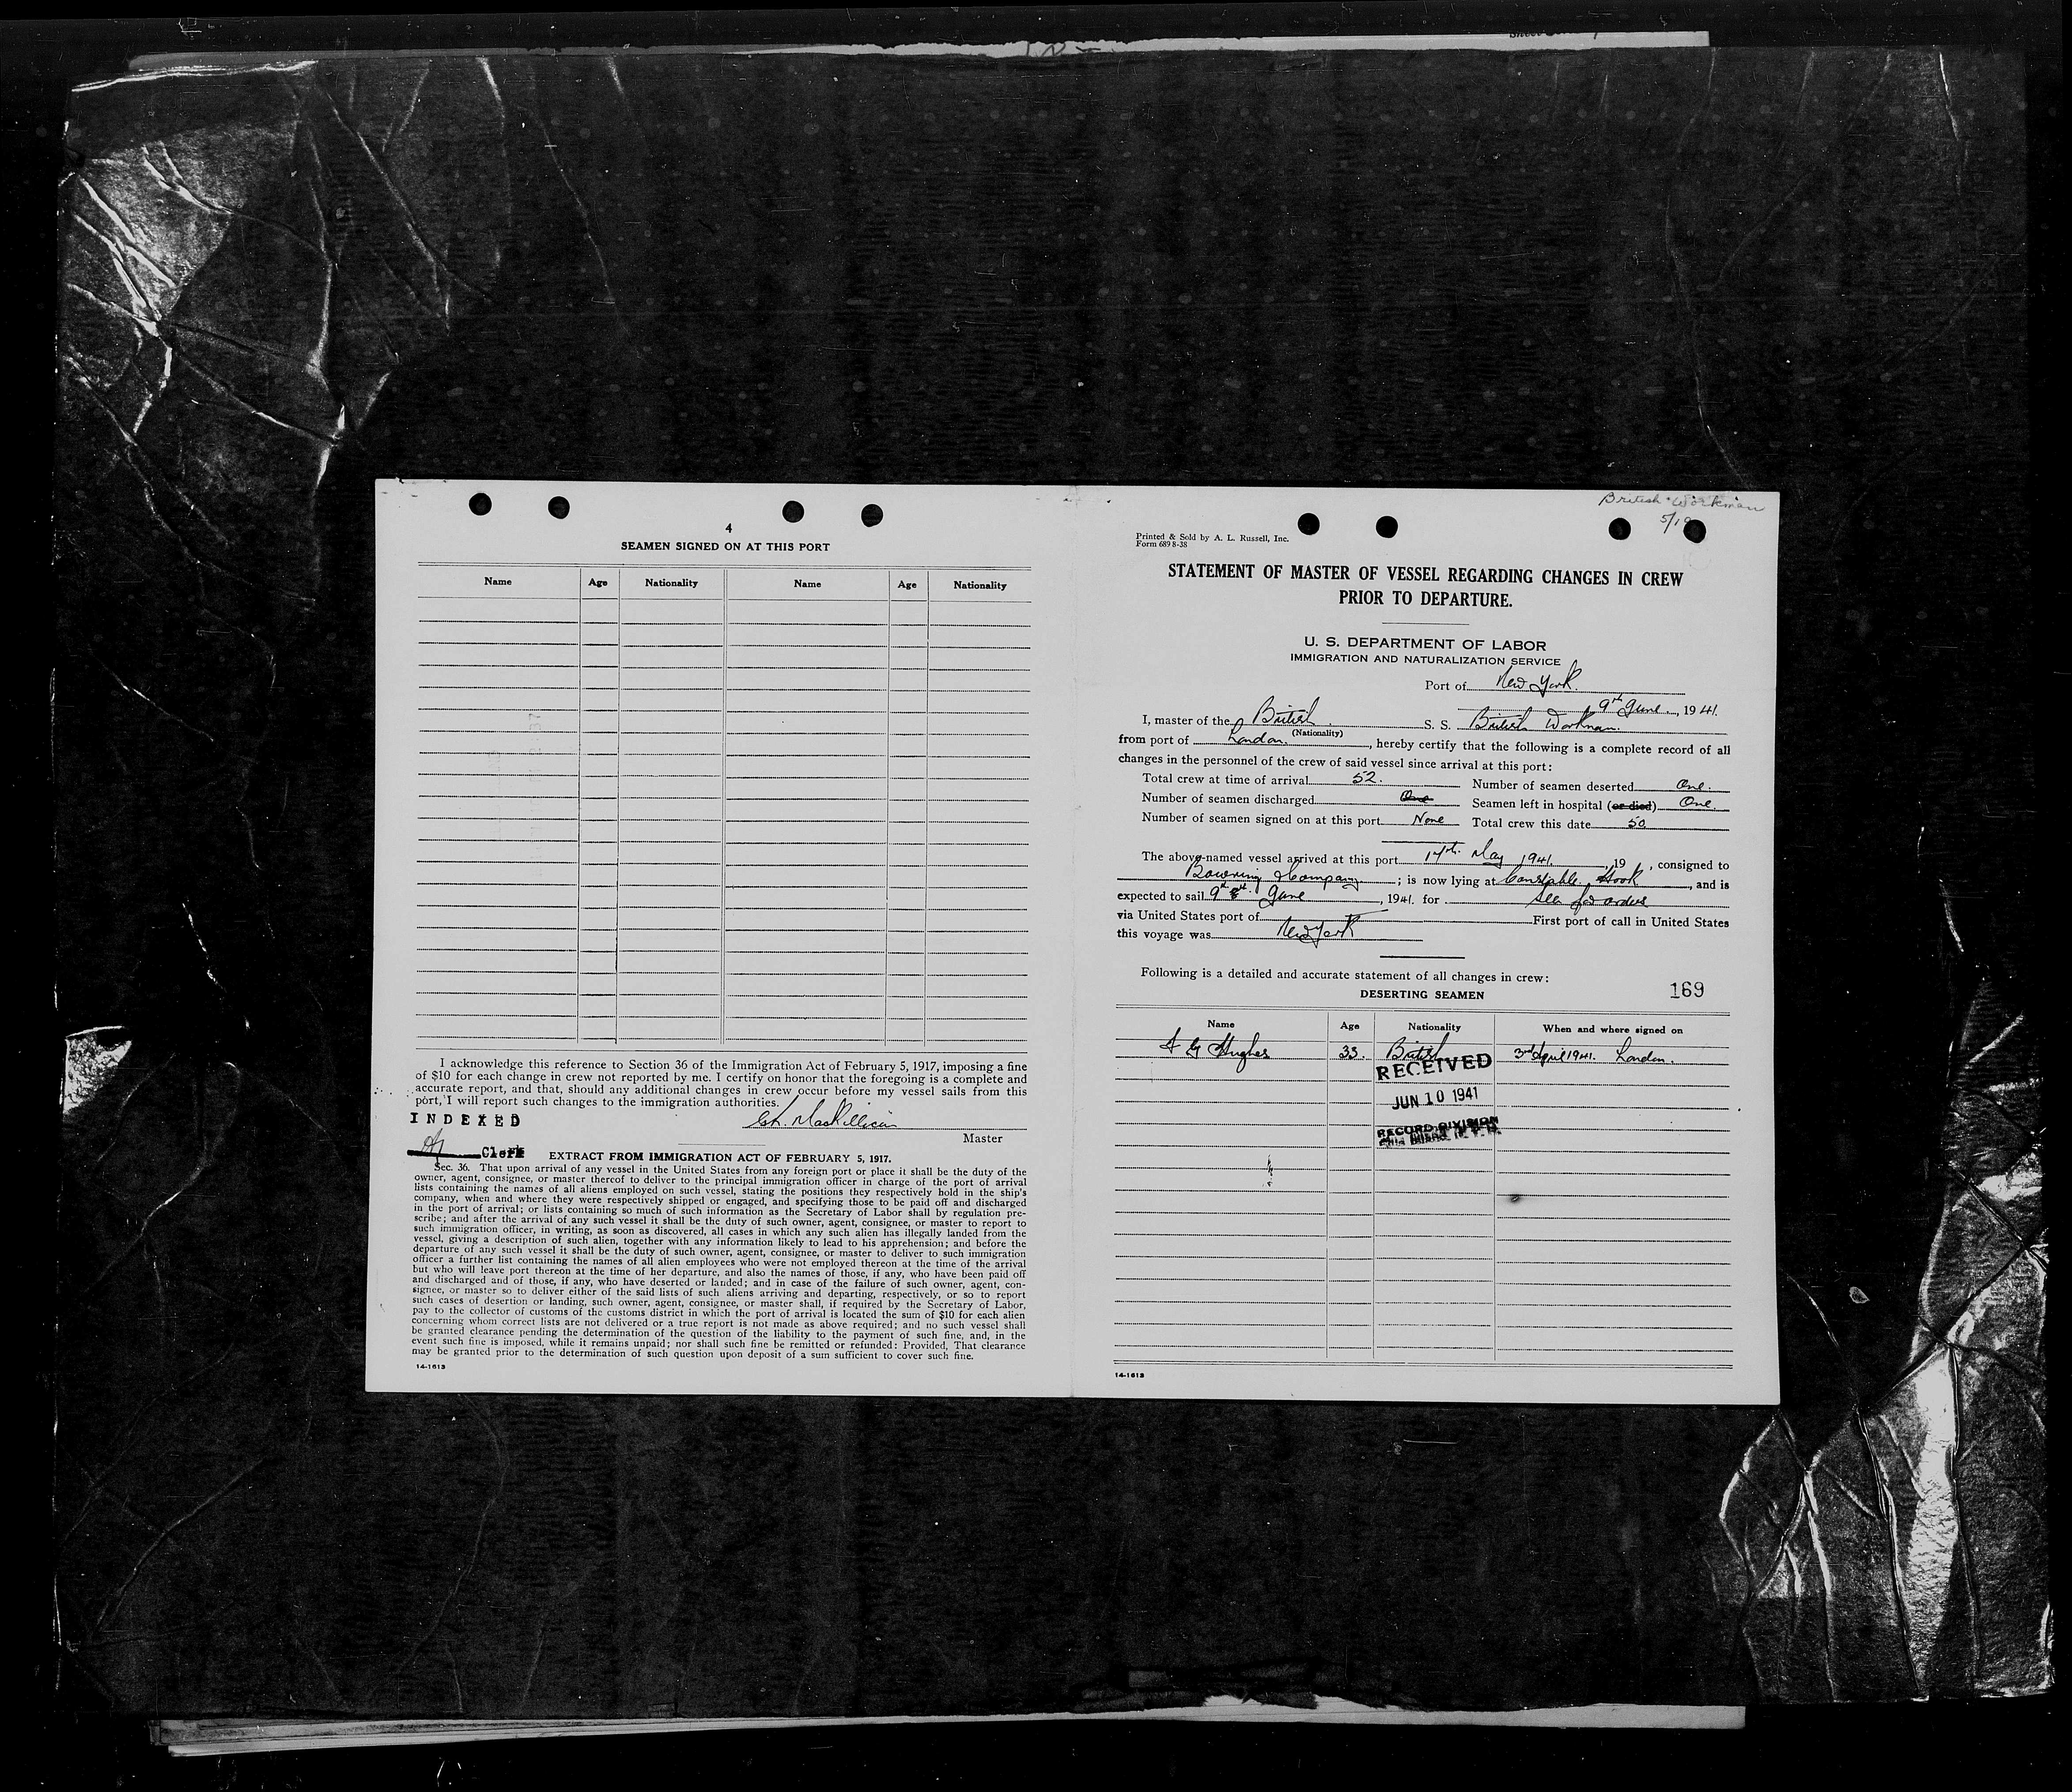 4
SEAMEN SIGNED ON AT THIS PORT
Name Age Nationality Name Age Nationality
I acknowledge this reference to Section 36 of the Immigration Act of February 5, 1917, imposing a fine
of $10 for each change in crew not reported by me. I certify on honor that the foregoing is a complete and
accurate report, and that, should any additional changes in crew occur before my vessel sails from this
port, I will report such changes to the immigration authorities.
INDEXED
Master
Clerk
EXTRACT FROM IMMIGRATION ACT OF FEBRUARY 5, 1917.
Sec. 36. That upon arrival of any vessel in the United States from any foreign port or place it shall be the duty of the
owner, agent, consignee, or master thereof to deliver to the principal immigration officer in charge of the port of arrival
lists containing the names of all aliens employed on such vessel, stating the positions they respectively hold in the ship's
company, when and where they were respectively shipped or engaged, and specifying those to be paid off and discharged
in the port of arrival; or lists containing so much of such information as the Secretary of Labor shall by regulation pre-
scribe; and after the arrival of any such vessel it shall be the duty of such owner, agent, consignee, or master to report to
such immigration officer, in writing, as soon as discovered, all cases in which any such alien has illegally landed from the
vessel, giving a description of such alien, together with any information likely to lead to his apprehension; and before the
departure of any such vessel it shall be the duty of such owner, agent, consignee, or master to deliver to such immigration
officer a further list containing the names of all alien employees who were not employed thereon at the time of the arrival
but who will leave port thereon at the time of her departure, and also the names of those, if any, who have been paid off
and discharged and of those, if any, who have deserted or landed; and in case of the failure of such owner, agent, con-
signee, or master so to deliver either of the said lists of such aliens arriving and departing, respectively, or so to report
such cases of desertion or landing, such owner, agent, consignee, or master shall, if required by the Secretary of Labor,
pay to the collector of customs of the customs district in which the port of arrival is located the sum of $10 for each alien
concerning whom correct lists are not delivered or a true report is not made as above required; and no such vessel shall
be granted clearance pending the determination of the question of the liability to the payment of such fine, and, in the
event such fine is imposed, while it remains unpaid; nor shall such fine be remitted or refunded: Provided, That clearance
may be granted prior to the determination of such question upon deposit of a sum sufficient to cover such fine.
14-1613
British Workman
Printed & Sold by A. L. Russell, Inc.
Form 689 8-38
STATEMENT OF MASTER OF VESSEL REGARDING CHANGES IN CREW
PRIOR TO DEPARTURE.
U. S. DEPARTMENT OF LABOR
IMMIGRATION AND NATURALIZATION SERVICE
Port of New York.
9th June, 1941.
I, master of the British S. S. British Workman.
(Nationality)
from port of London., hereby certify that the following is a complete record of all
changes in the personnel of the crew of said vessel since arrival at this port:
Total crew at time of arrival 52. Number of seamen deserted One.
Number of seamen discharged One Seamen left in hospital (or died) One.
Number of seamen signed on at this port None Total crew this date 50
The above-named vessel arrived at this port 17th May 1941., 19 , consigned to
Bowring & Company; is now lying at Constable Hook, and is
expected to sail 9th 8th June, 1941. for Sea for orders
via United States port of First port of call in United States
this voyage was New York
Following is a detailed and accurate statement of all changes in crew:
DESERTING SEAMEN 169
Name Age Nationality When and where signed on
Hughes 33. British 3rd April 1941. London.
RECEIVED
JUN 10 1941
RECORD DIVISION
14-1613